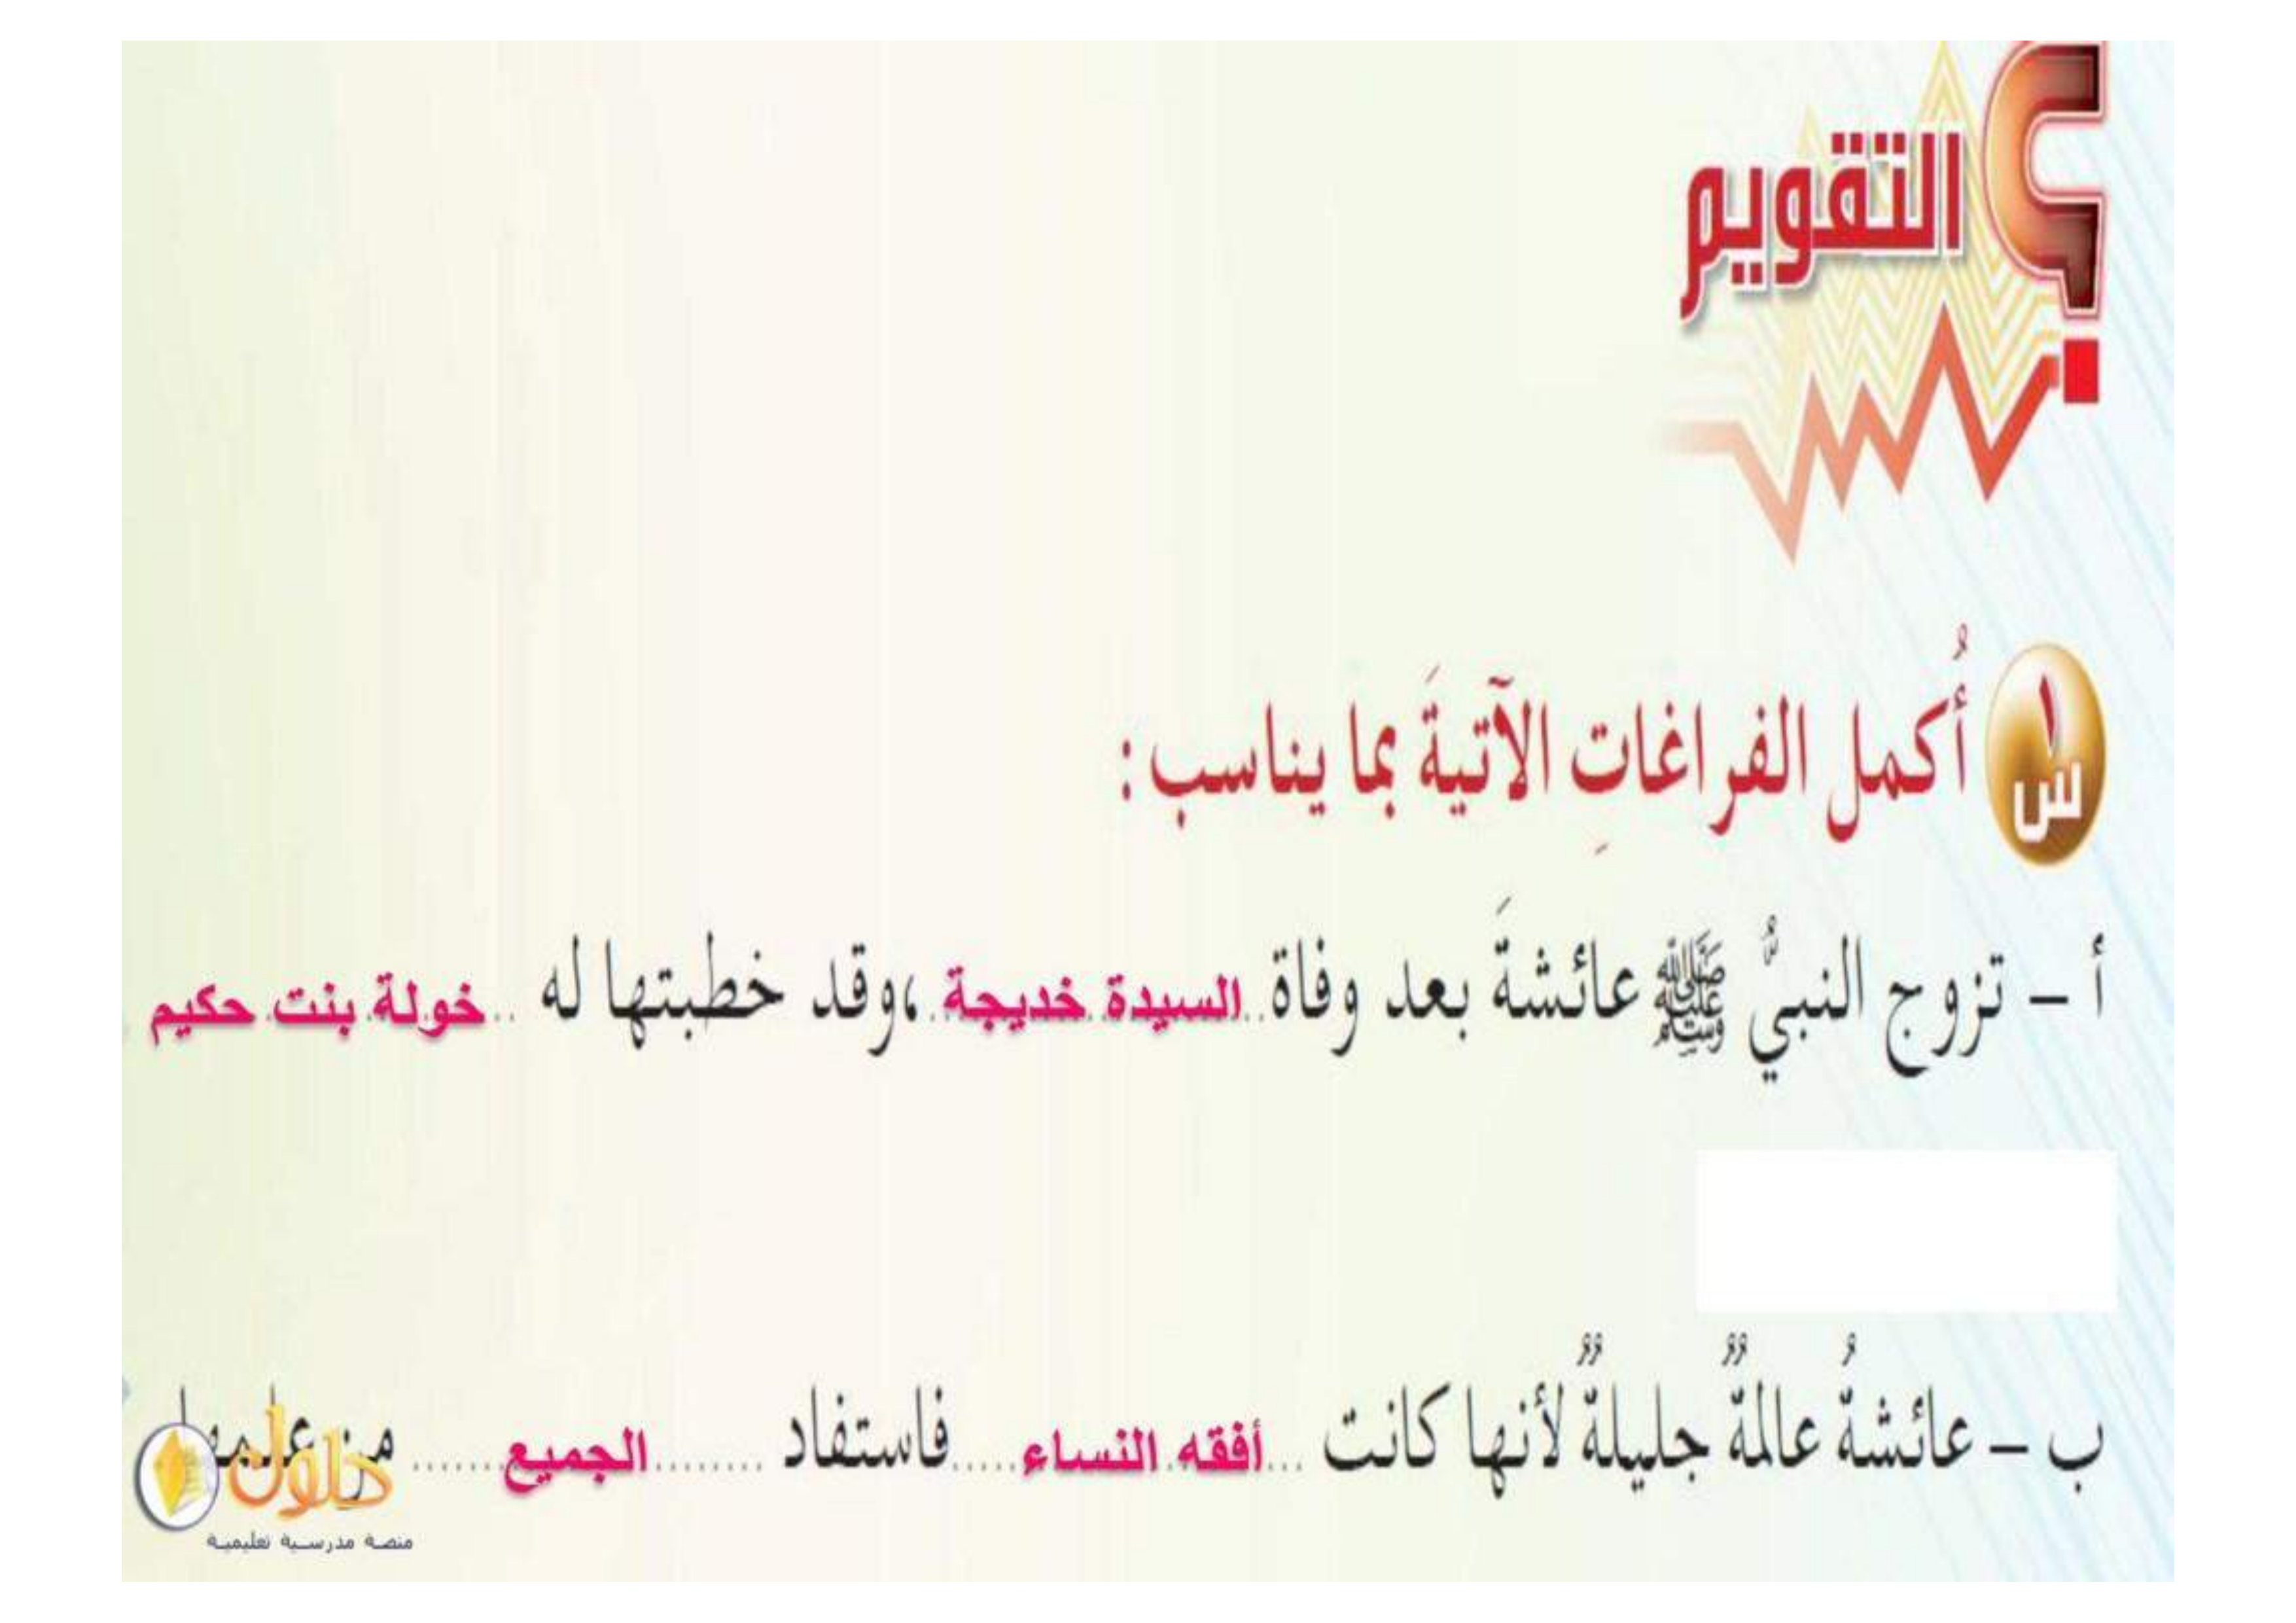 التقويم
س١ أُكمل الفراغاتِ الآتيةَ بما يناسب :
أ – تزوج النبيُّ ﷺ عائشةَ بعد وفاة السيدة خديجة ،وقد خطبتها له .. خولة بنت حكيم
ب – عائشةُ عالمةٌ جليلةٌ لأنها كانت ... أفقه النساء ..... فاستفاد ........ الجميع ....... من علمها
حلول
منصة مدرسية تعليمية